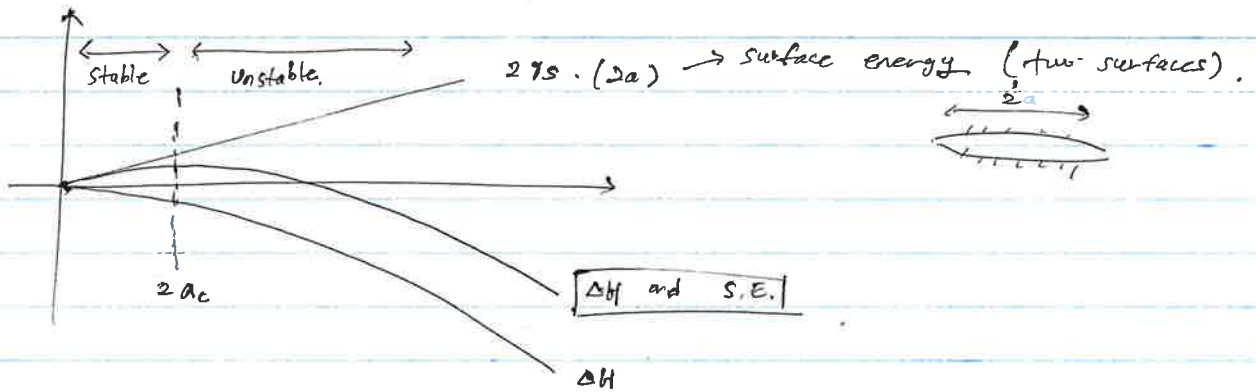 stable unstable.
2γs . (2a) → surface energy (two surfaces).
2a
2ac
ΔH and S.E.
ΔH